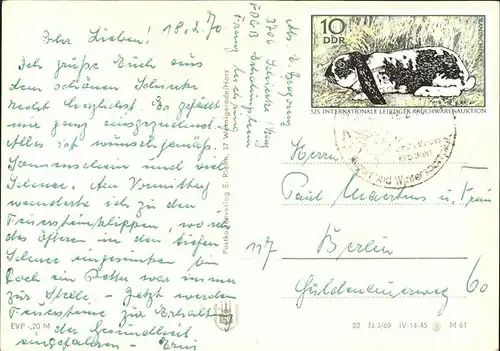 Ihr Lieben! 18.2.70
Ich grüße Euch aus
dem schönen Schierke
recht herzlichst. Es gefällt
mir ganz ausgezeichnet.
Alles ist wunschgemäß.
Sonnenschein und viel
Schnee. Am Vormittag
wanderte ich zu den
Feuersteinklippen, wo ich
des öfteren in den tiefen
Schnee eingesunken bin
Doch ein Retter war immer
zur Stelle. - Jetzt werden
Feuersteine zur Erhaltung
der Gesundheit
eingefahren -
EVP -,20 M
3706 Schierke/Harz
FDGB-Erholungsheim
Postkartenverlag E. Riehn, 37 Wernigerode/Harz
10
DDR
KANINCHEN
525. INTERNATIONALE LEIPZIGER RAUCHWARENAUKTION
Brocken
und Wintersport
Herrn
Paul und Frau
117 Berlin
Güldenauerweg 60
22 N 3/69 IV-14-45 M 61